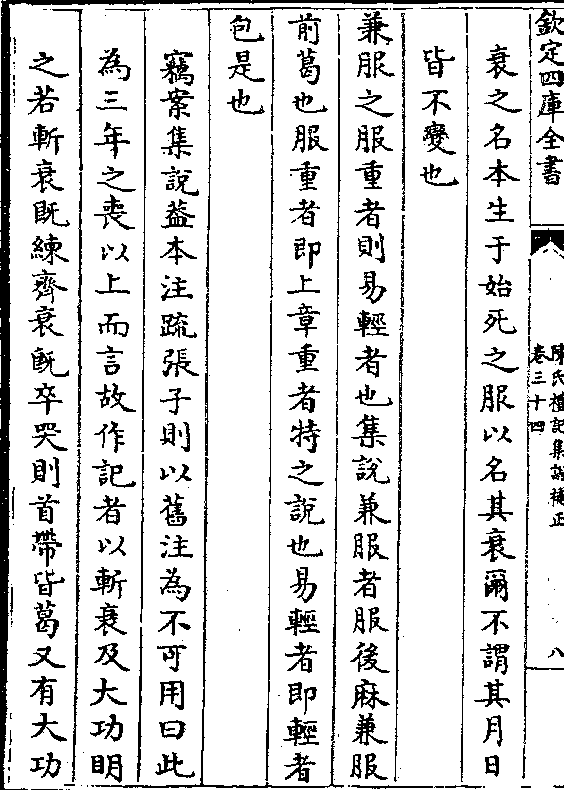 欽定四庫全書
陳氏禮記集說補正
卷三十四
八
衰之名本生于始死之服以名其衰爾不謂其月日
皆不變也
兼服之服重者則易輕者也集說兼服者服後麻兼服
前葛也服重者即上章重者特之說也易輕者即輕者
包是也
竊案集說葢本注疏張子則以舊注為不可用曰此
為三年之喪以上而言故作記者以斬衰及大功明
之若斬衰既練齊衰既卒哭則首帶皆葛又有大功